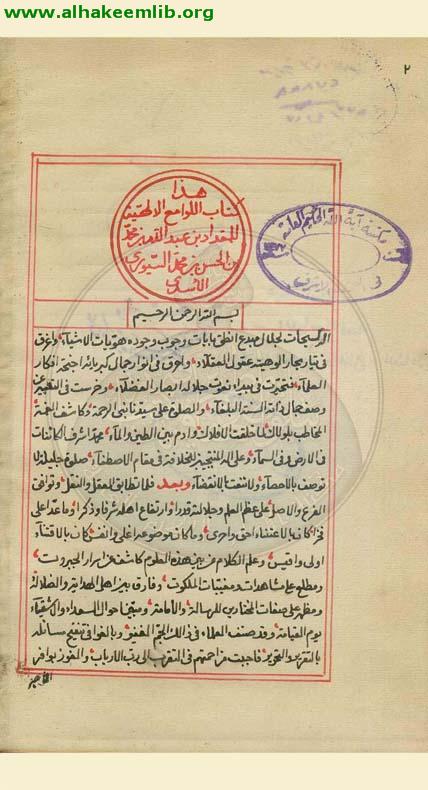 www.alhakeemlib.org
٢
هذا
كتاب اللوامع الالهية
للمقداد بن عبد الله بن محمد
بن الحسن بن محمد السيوري
الأسدي
مكتبة آية الله الحكيم العامة
بسم الله الرحمن الرحيم
لجلال مبدع انطق بايات وجوب وجوده هويات الاشياء واغرق
في تيار بحار الوهيته عقول العقلاء واحرق في انوار جمال كبريائه اجنحة افكار
العلماء فتحيرت في بيداء نعوت جلاله ابصار الفضلاء وخرست في التعبير عن
وصف جمال ذاته السنة البلغاء والصلوة على سيدنا نبي الرحمة وكاشف الغمة
المخاطب بلولاك لما خلقت الافلاك وادم بين الطين والماء محمد اشرف الكائنات
في الارض وفي السماء وعلى اله المنتجبين للخلافة في مقام الاصطفاء صلوة جليلة لا
توصف بالاحصاء ولا تنعت بالانقضاء وبعد فلما تطابق العقل والنقل وتوافق
الفرع والاصل على عظم العلم وجلالته قدرا وارتفاع اهله شرفا وذكرا وما عدا على
كان بالاعتناء احق واحرى وما كان موضوعه اعلى وانفس كان بالاقتناء
اولى واقيس وعلم الكلام من بين هذه العلوم كاشف عن اسرار الجبروت
ومطلع على مشاهدات ومغيبات الملكوت وفارق بين اهل الهداية والضلالة
ومظهر على صفات المختارين للرسالة والامامة ومبين احوال السعداء والاشقياء
يوم القيامة وقد صنف العلماء في ذلك الجم الغفير وبالغوا في تنقيح مسائله
بالتقرير والتحرير فاحببت مزاحمتهم في التقرب الى رب الارباب والفوز بوافر